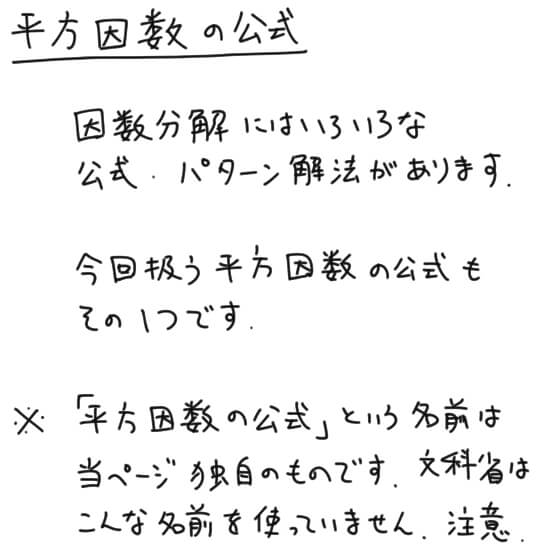 平方因数の公式
因数分解にはいろいろな
公式・パターン解法があります.
今回扱う平方因数の公式も
その1つです.
※「平方因数の公式」という名前は
当ページ独自のものです. 文科省は
こんな名前を使っていません. 注意.